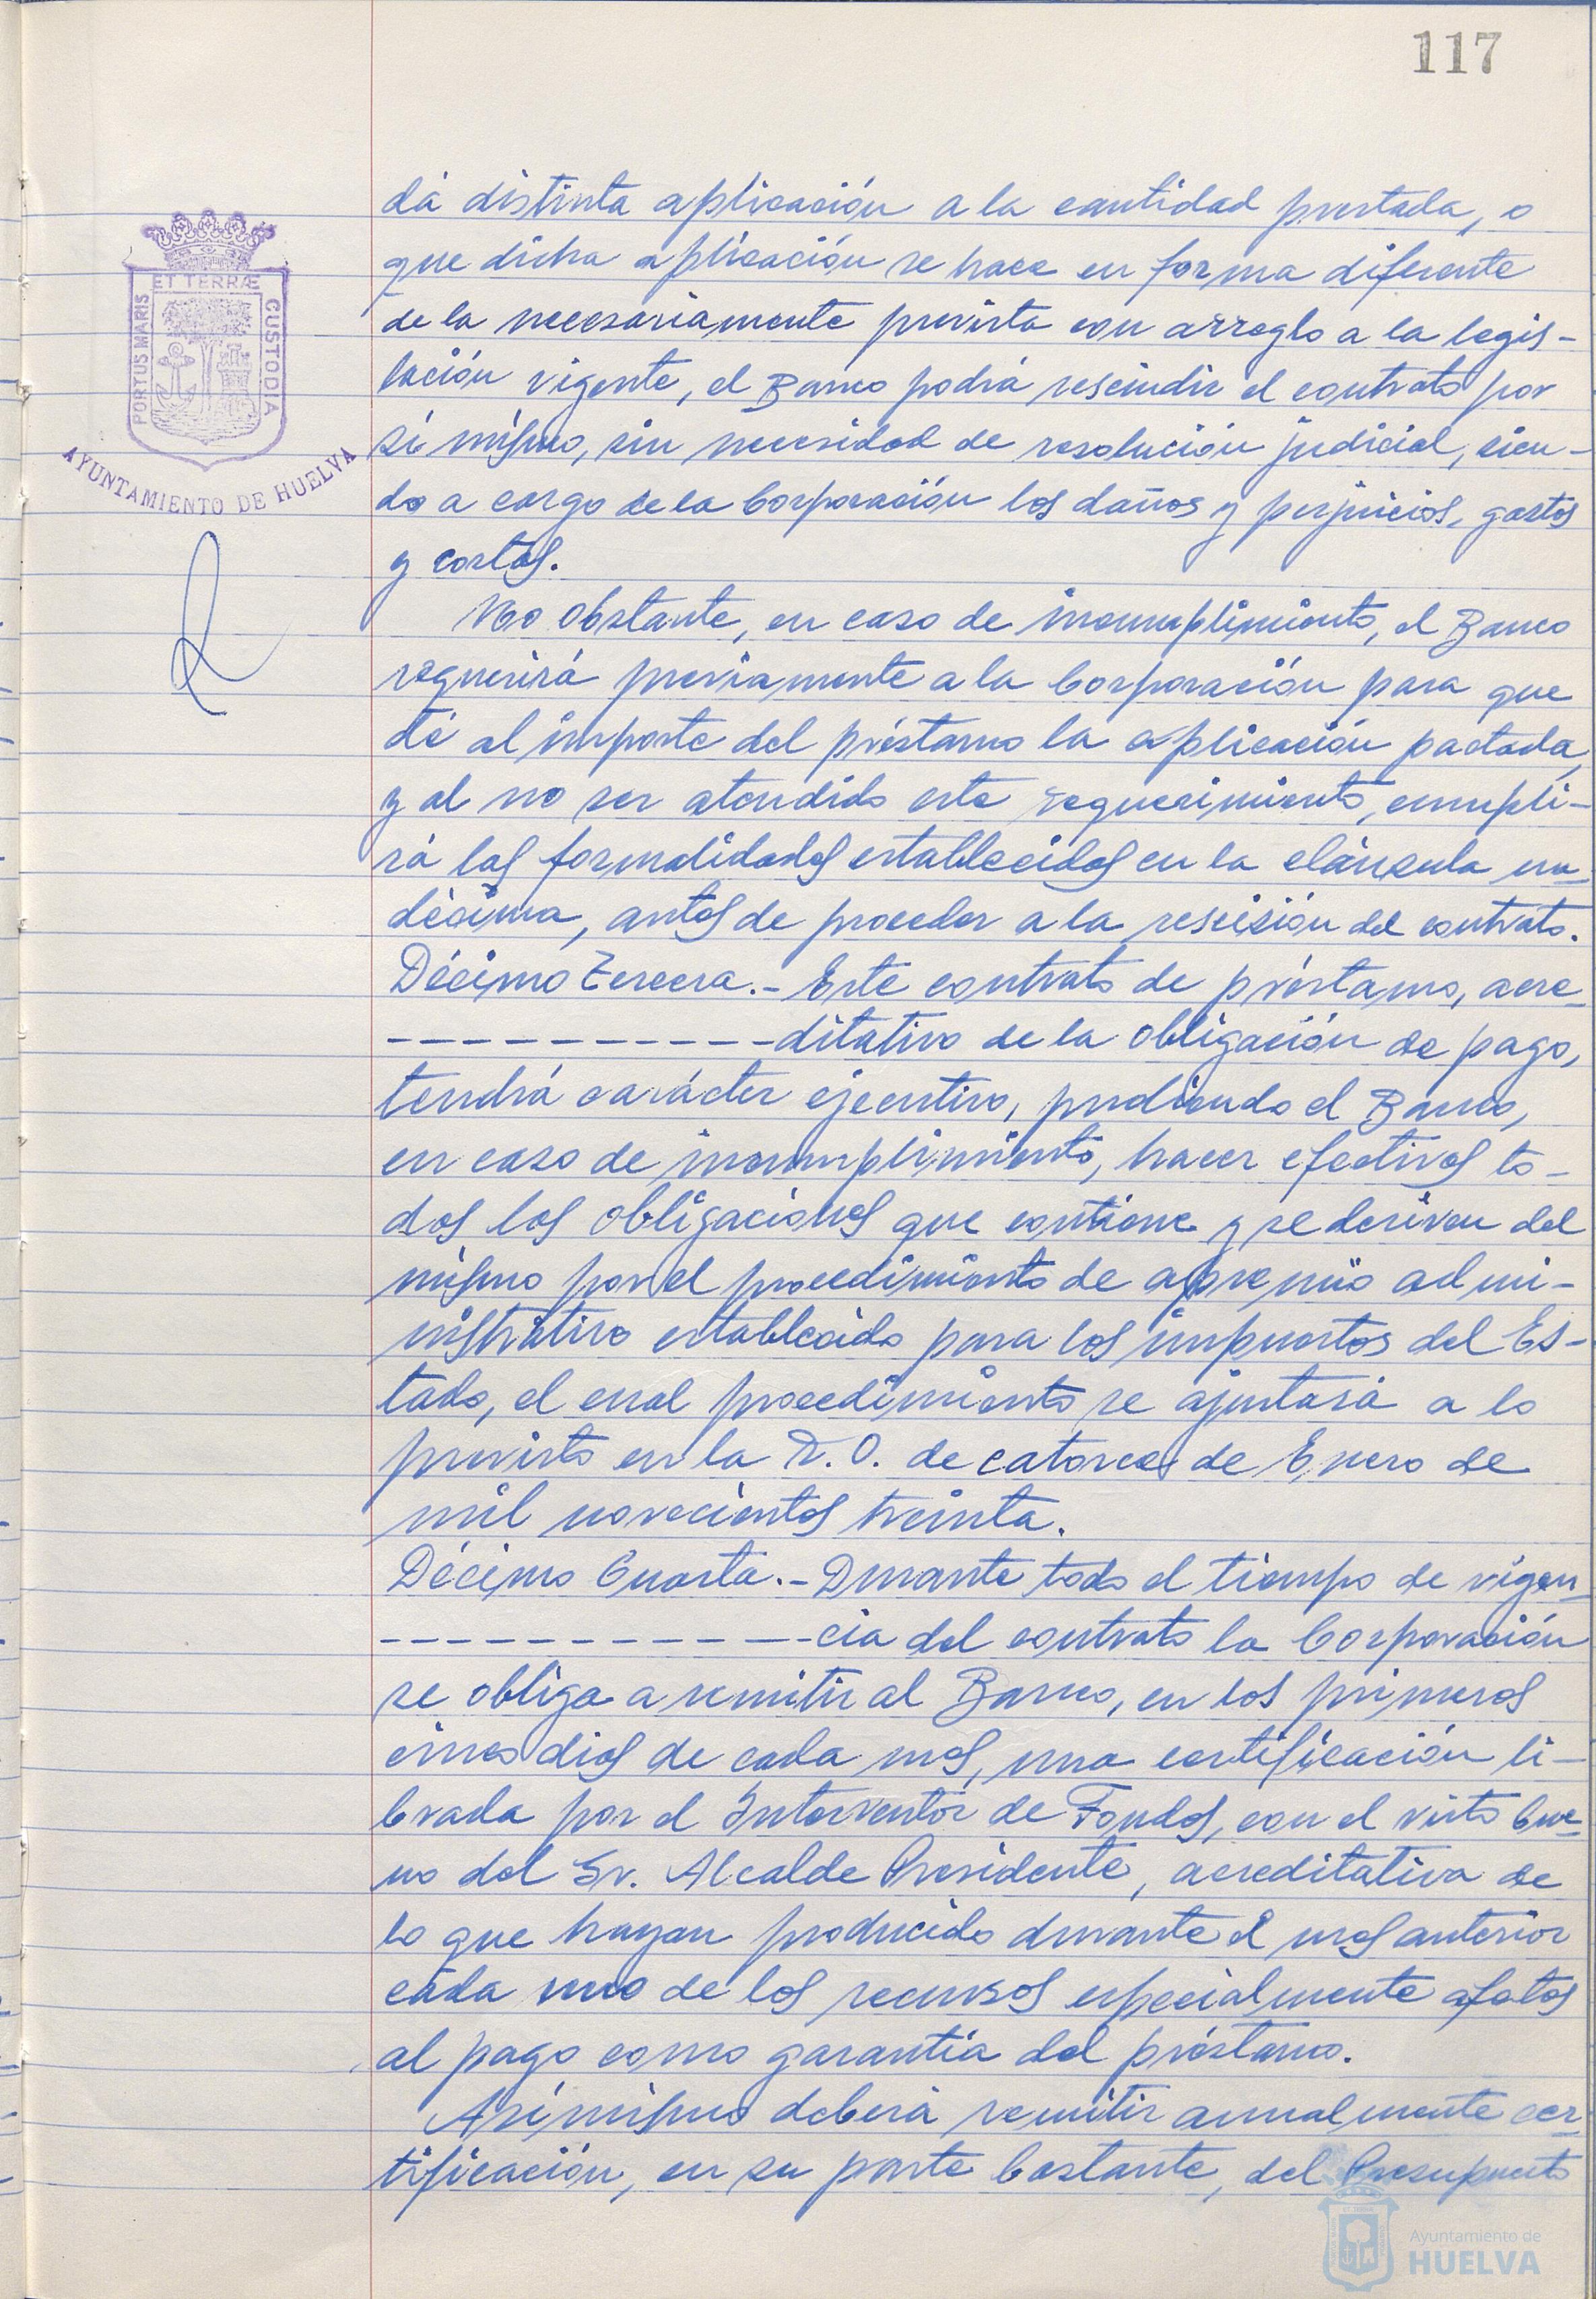 117
ET TERRÆ
PORTUS MARIS
CUSTODIA
AYUNTAMIENTO DE HUELVA
dá distinta aplicación a la cantidad prestada, o
que dicha aplicación se hace en forma diferente
de la necesariamente prevista con arreglo a la legis-
lación vigente, el Banco podrá rescindir el contrato por
sí mismo, sin necesidad de resolución judicial, sien-
do a cargo de la Corporación los daños y perjuicios, gastos
y costas.
No obstante, en caso de incumplimiento, el Banco
requerirá previamente a la Corporación para que
dé al importe del préstamo la aplicación pactada,
y al no ser atendido este requerimiento, cumpli-
rá las formalidades establecidas en la cláusula un-
décima, antes de proceder a la rescisión del contrato.
Décimo Tercera.- Este contrato de préstamo, acre-
-----------ditativo de la obligación de pago,
tendrá carácter ejecutivo, pudiendo el Banco,
en caso de incumplimiento, hacer efectivas to-
das las obligaciones que contiene y se deriven del
mismo por el procedimiento de apremio admi-
nistrativo establecido para los impuestos del Es-
tado, el cual procedimiento se ajustará a lo
previsto en la R. O. de catorce de Enero de
mil novecientos treinta.
Décimo Cuarta.- Durante todo el tiempo de vigen-
------------cia del contrato la Corporación
se obliga a remitir al Banco, en los primeros
cinco dias de cada mes, una certificación li-
brada por el Interventor de Fondos, con el visto bue-
no del Sr. Alcalde Presidente, acreditativa de
lo que hayan producido durante el mes anterior
cada uno de los recursos especialmente afectos
al pago como garantía del préstamo.
Asimismo deberá remitir anualmente cer-
tificación, en su parte bastante, del Presupuesto
Ayuntamiento de
HUELVA